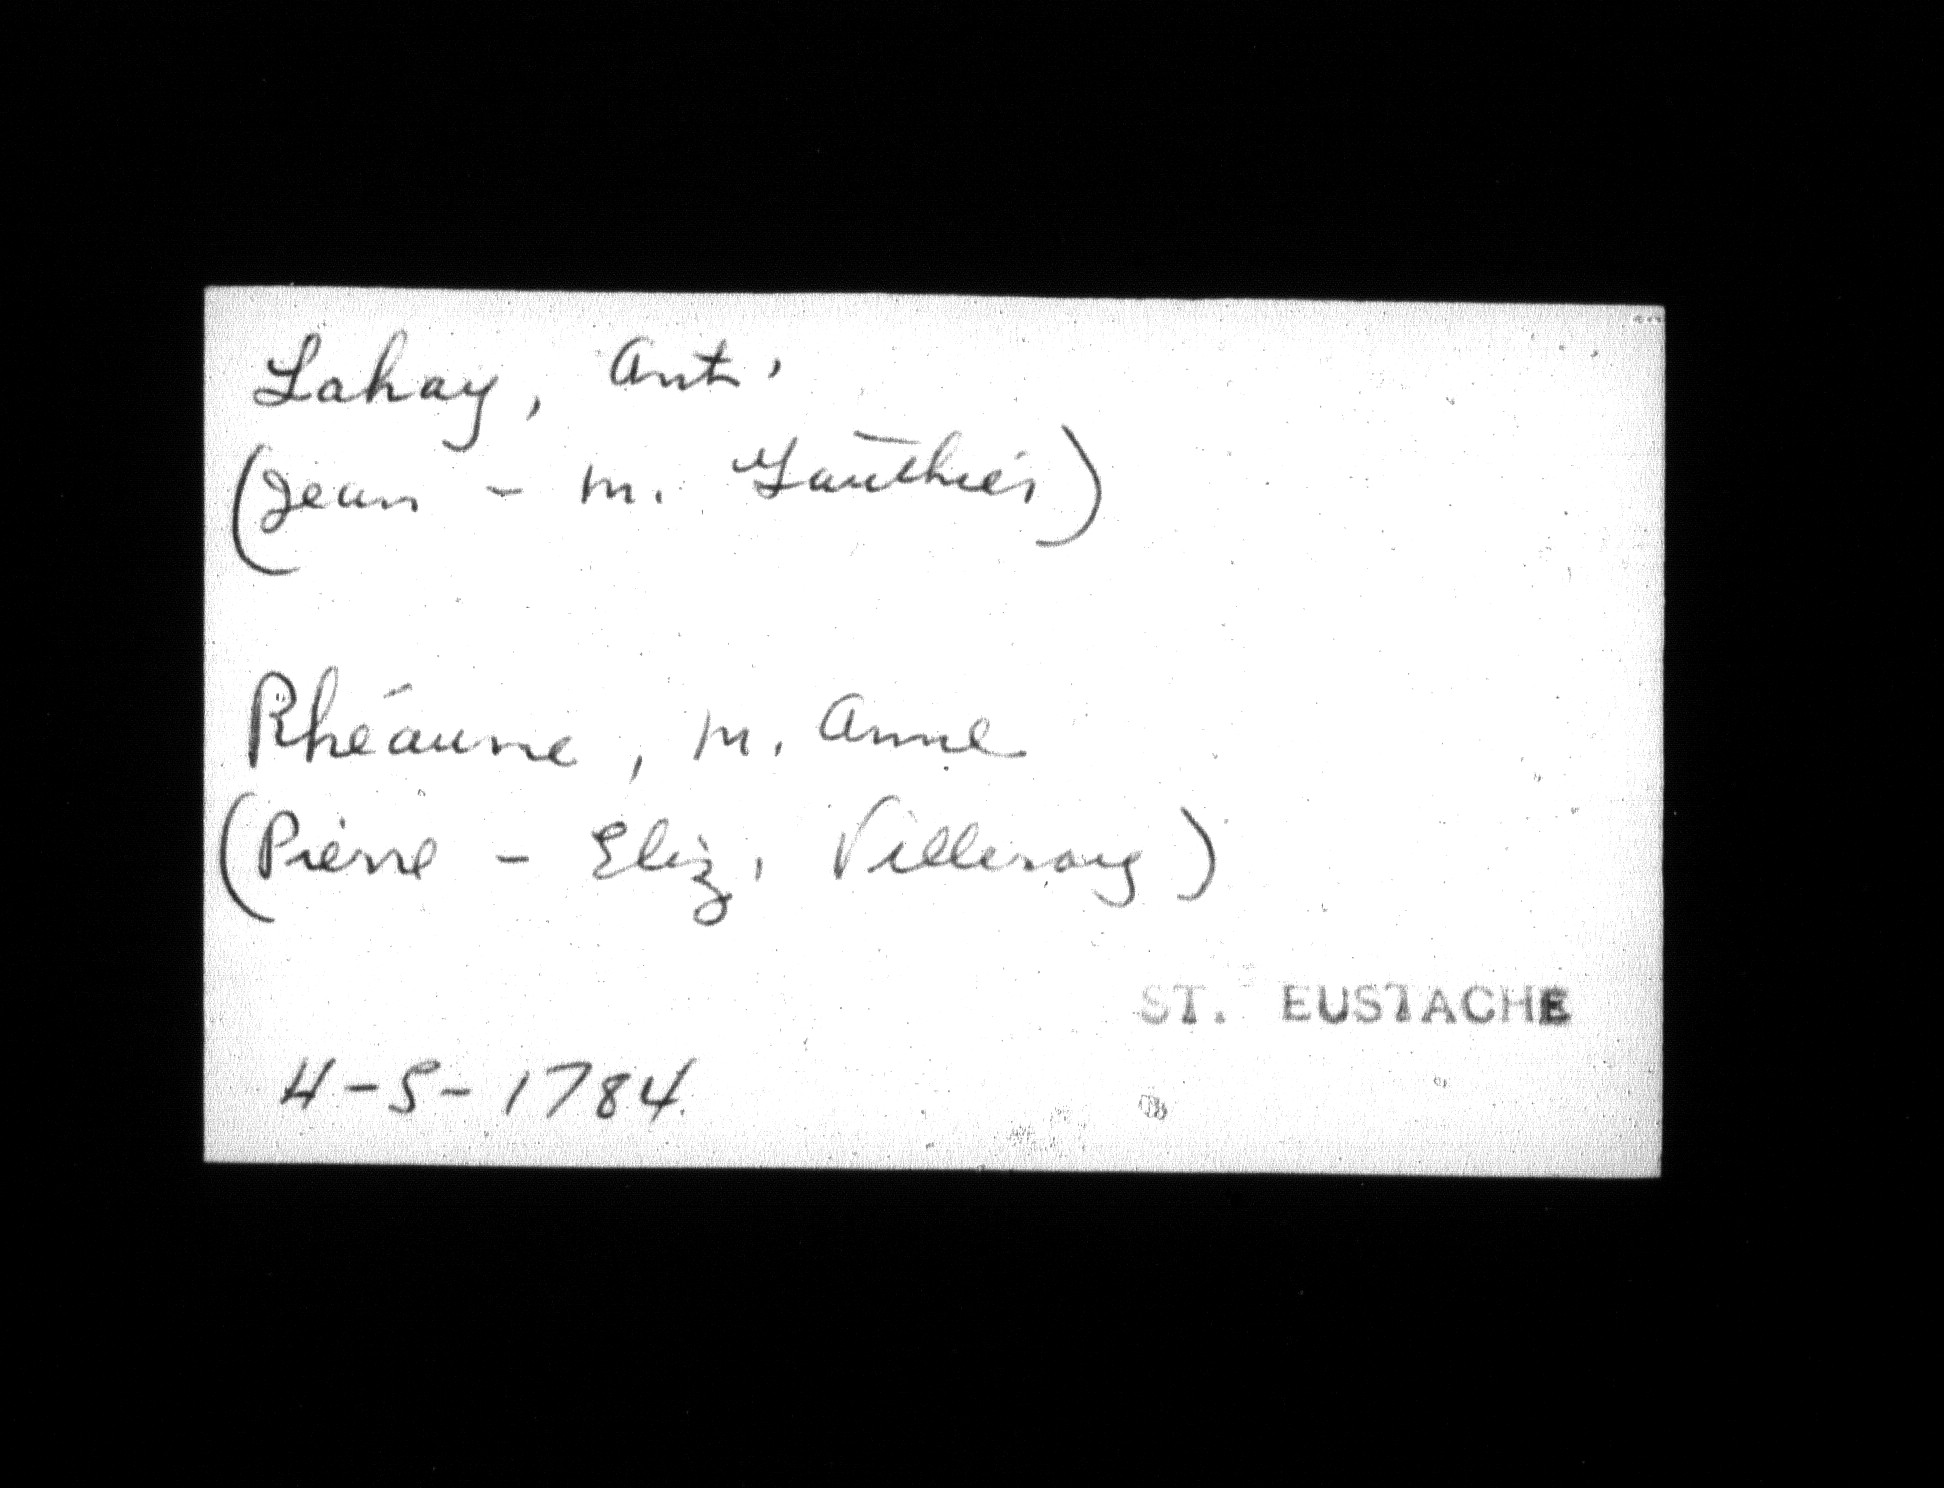 Lahay, Ant.
(Jean - m. Gauthier)
Rhéaume, m. Anne
(Pierre - Eliz. Villeray)
ST. EUSTACHE
4-5-1784.